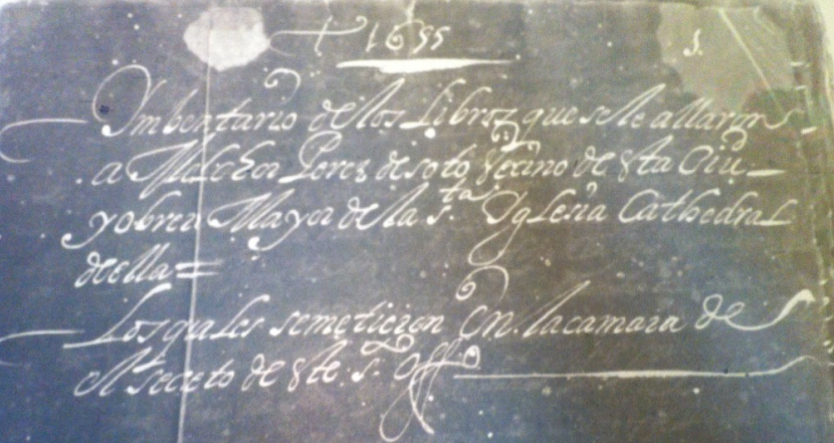 † 1655 1.
Ymbentario de los Libros que se le allaron
a Melchor Perez de soto Vecino de esta Ciud
y obrero Mayor de la s.ta Yglesia Cathedral
de ella =
Los quales se metieron En la camara de
el secreto de este s.to Offo